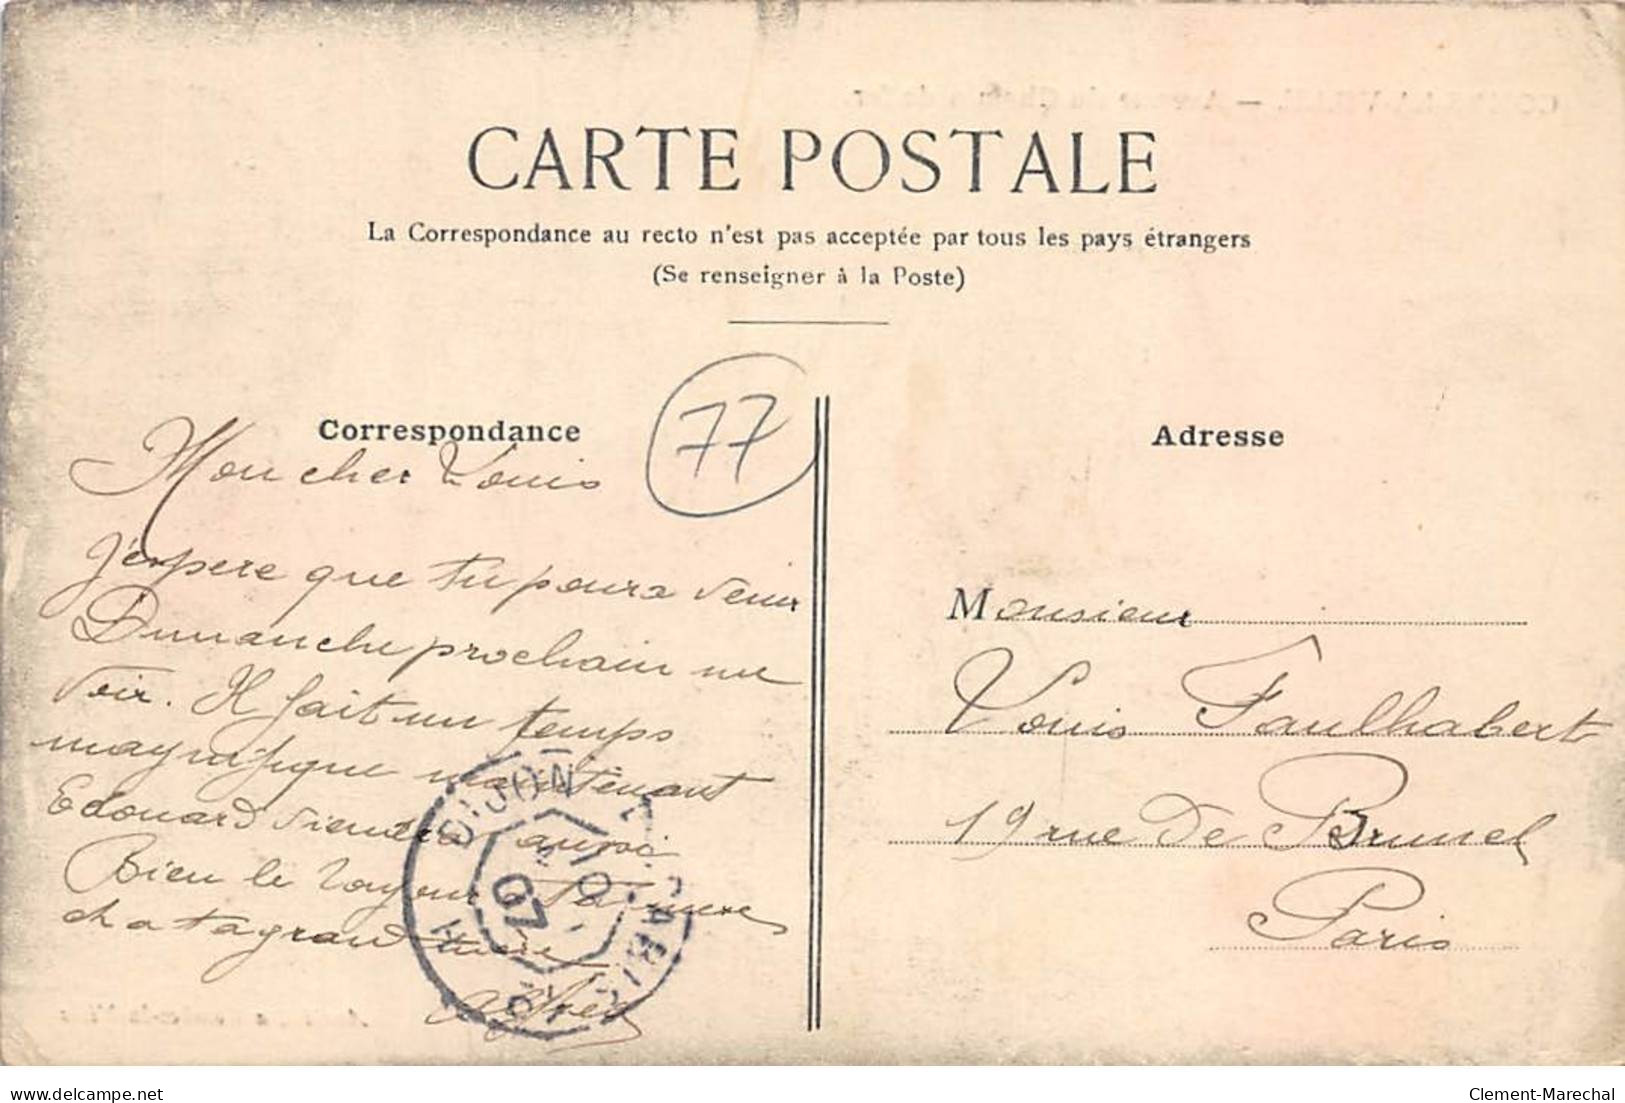 CARTE POSTALE
La Correspondance au recto n'est pas acceptée par tous les pays étrangers
(Se renseigner à la Poste)
77
Correspondance
Mon cher Louis
J'espere que tu poura venir
Dimanche prochain me
voir. Il fait un temps
magnifique maintenant
Edouard viendra aussi
Bien le
chatagrand mere
Alfred
DIJON À PARIS
07
Adresse
Monsieur
Louis Faulhabert
19 rue de Brunel
Paris
delcampe.net
Clement-Marechal